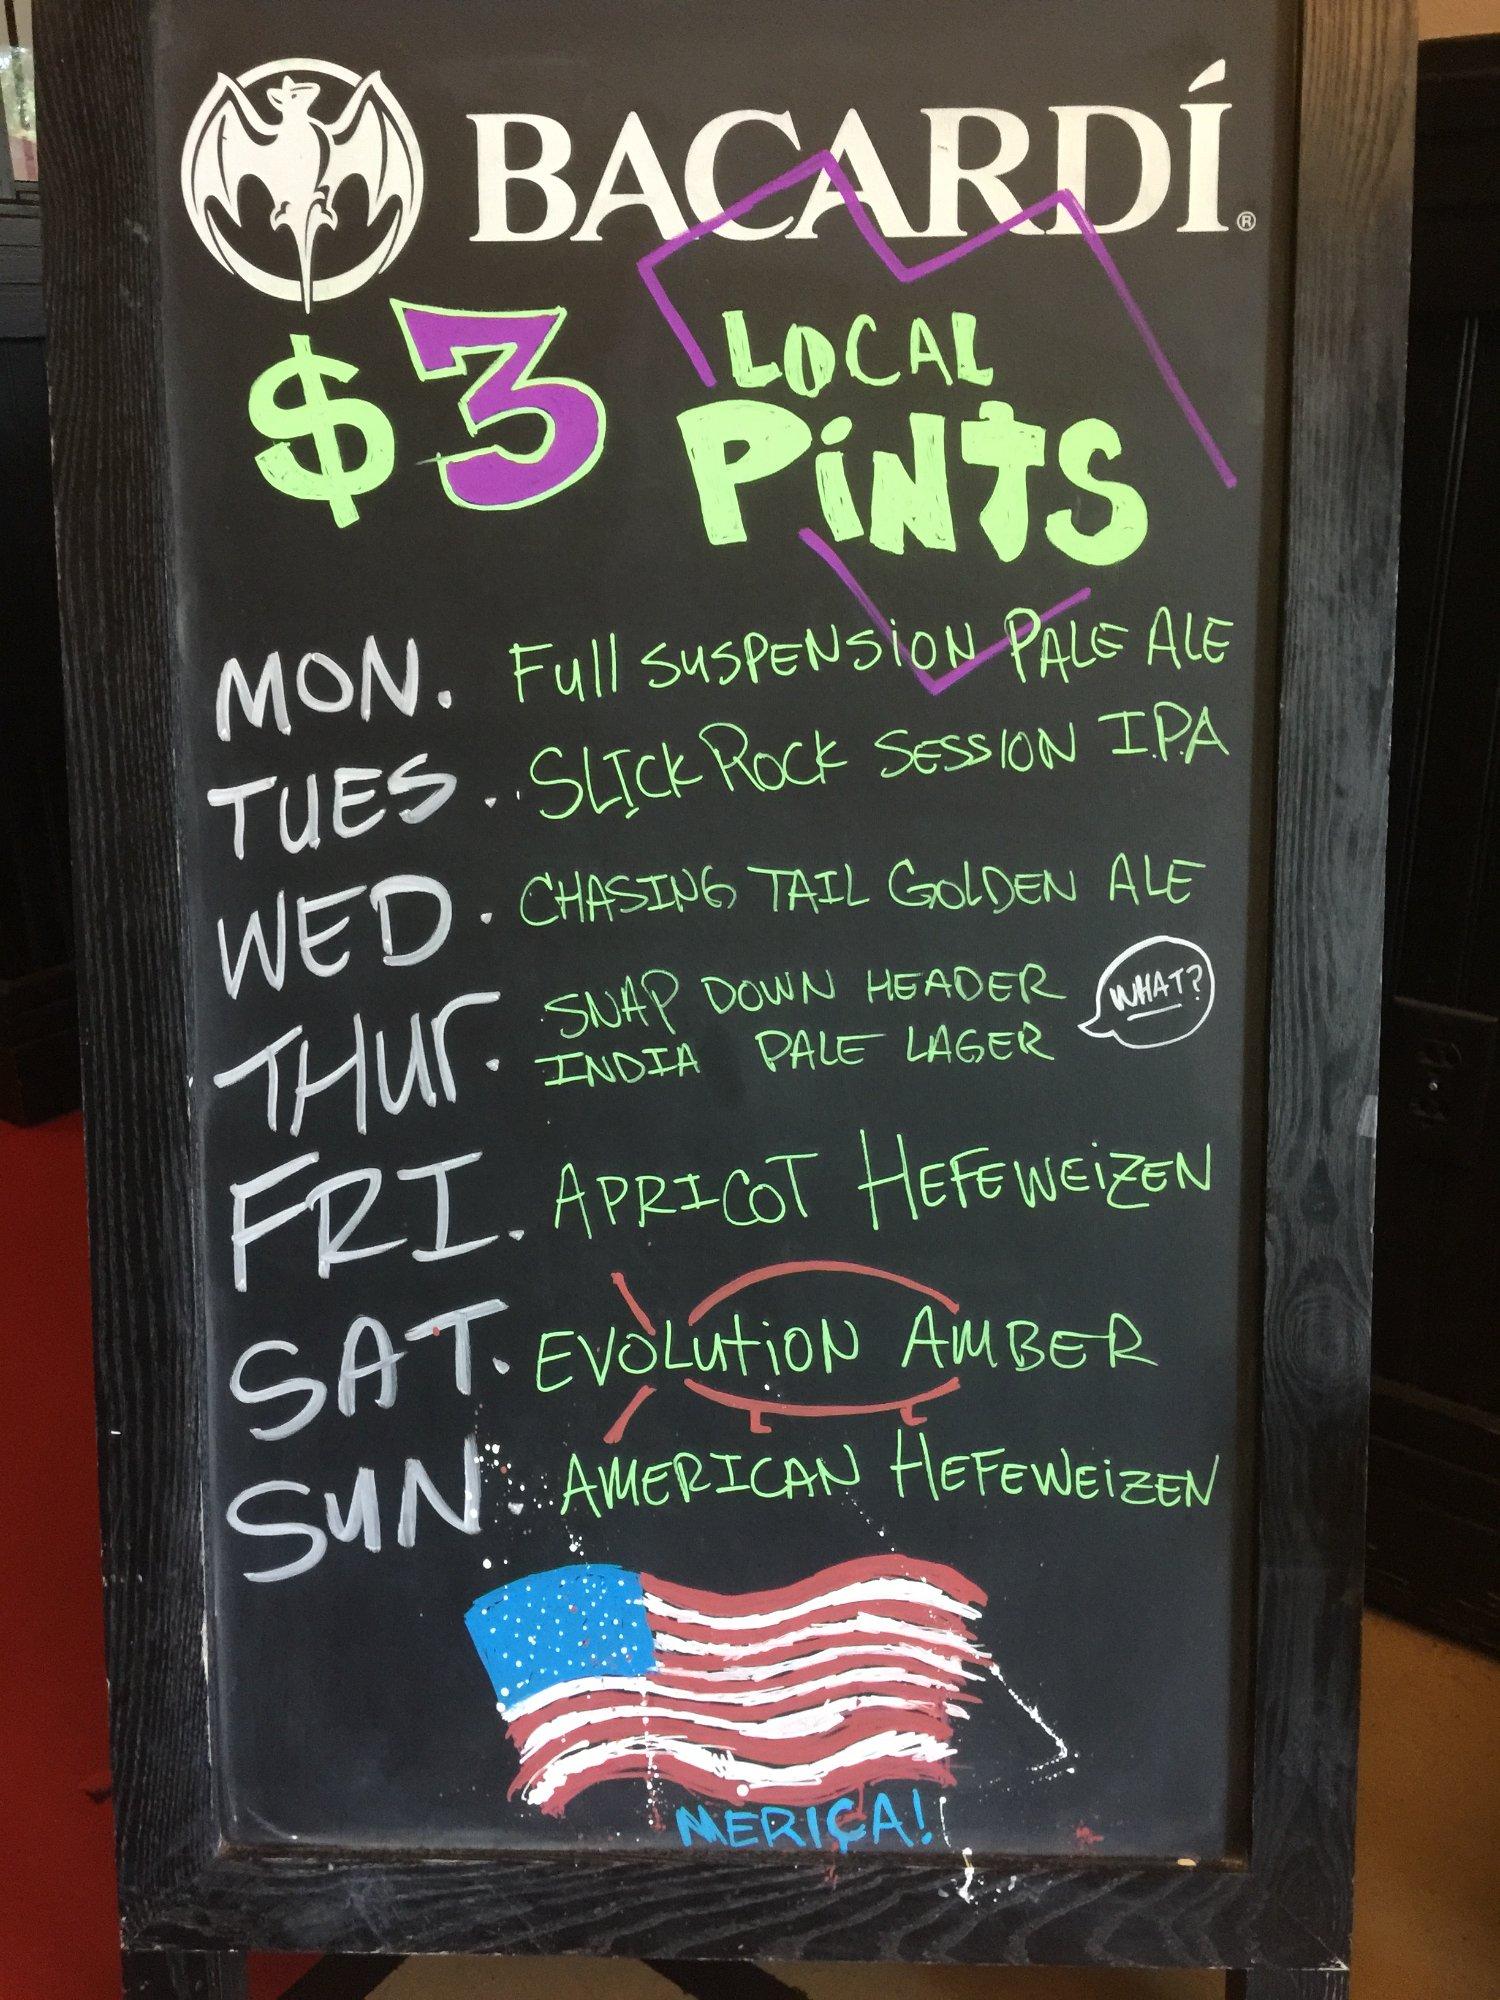 BACARDÍ®
$3 LOCAL
PiNTS
MON. Full SUSPENSiON PALE ALE
TUES. SLICKROCK SESSION I.P.A
WED. CHASING TAIL GOLDEN ALE
THUr. SNAP DOWN HEADER
INDIA PALE LAGER
WHAT?
FRI. APRICOT HEFEWEiZEN
SAT. EVOLUtiON AMBER
SUN. AMERICAN HEFEWEiZEN
MERICA!